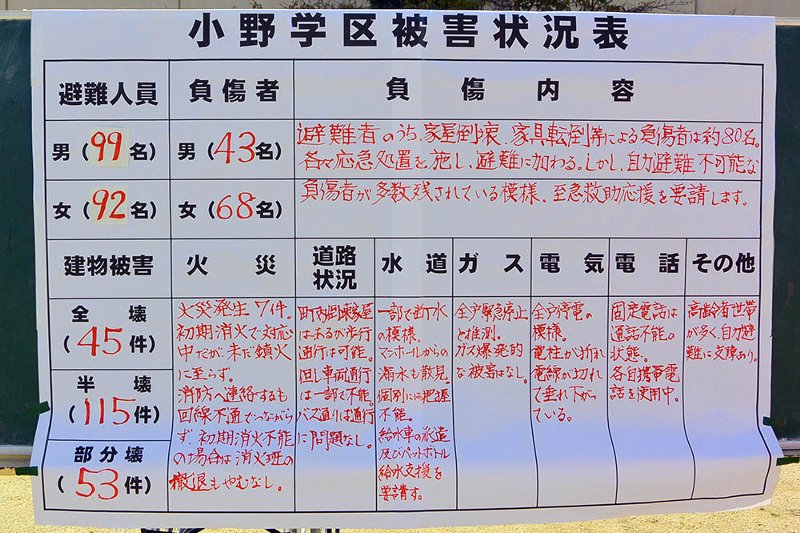 小野学区被害状況表
避難人員
負傷者
負傷内容
男(99名)
男(43名)
避難者のうち、家屋倒壊、家具転倒等による負傷者は約80名。
各々応急処置を施し、避難に加わる。しかし、自力避難不可能な
女(92名)
女(68名)
負傷者が多数残されている模様、至急救助応援を要請します。
建物被害
火災
道路
状況
水道
ガス
電気
電話
その他
全壊
(45件)
半壊
(115件)
部分壊
(53件)
火災発生7件。
初期消火で対応
中だが、未だ鎮火
に至らず。
消防へ連絡するも
回線不通でつながら
ず、初期消火不能
の場合は消火班の
撤退もやむなし。
町内倒壊家屋
はあるが歩行
通行は可能。
但し車両通行
は一部で不能。
バス通りは通行
に問題なし。
一部で断水
の模様。
マンホールからの
漏水も散見。
個別には把握
不能。
給水車の派遣
及びペットボトル
給水支援を
要請す。
全戸緊急停止
と推測。
ガス爆発的
な被害はなし。
全戸停電の
模様。
電柱が折れ
電線が切れ
て垂れ下がっ
ている。
固定電話は
通話不能の
状態。
各自携帯電
話を使用中。
高齢者世帯
が多く、自力避
難に支障あり。